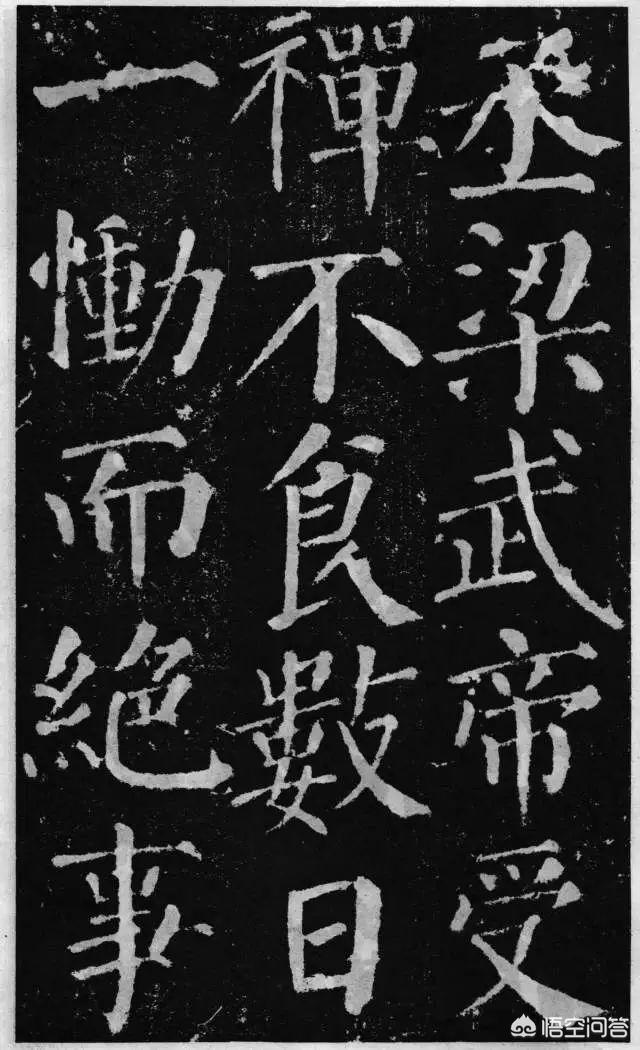 丞梁武帝受
禪不食數日
一慟而絕事
悟空问答